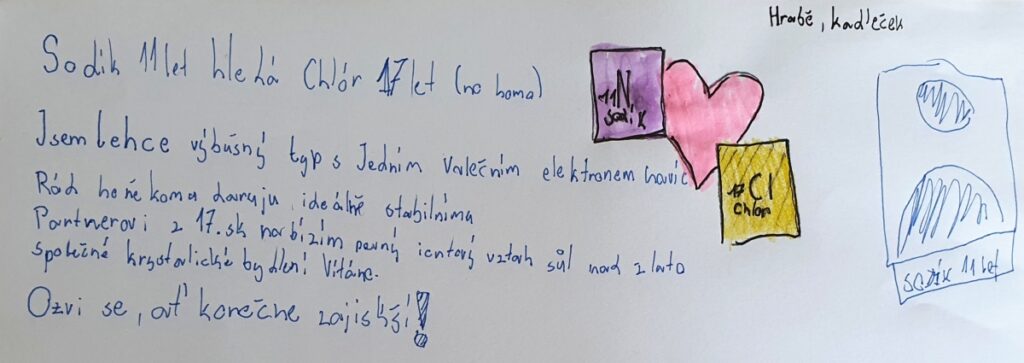 Hrabě, kadleček
Sodík 11 let hledá Chlór 17 let (no homo)
11N
sodík
17Cl
Chlor
Jsem lehce výbušný typ s Jedním valečním elektronem navíc
Rád ho někomu daruju, ideálně stabilníma
Partnerovi z 17.sk nabízím pevný iontový vztah sůl nad zlato
společné krystalické bydlení Vítáno.
Ozvi se, ať konečne zajiskří!
SODÍK 11 let